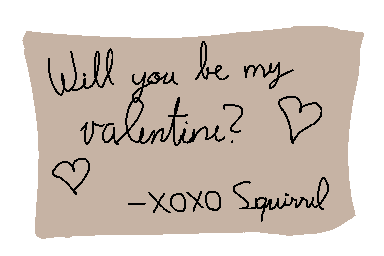 Will you be my
valentine?
-XOXO Squirrel